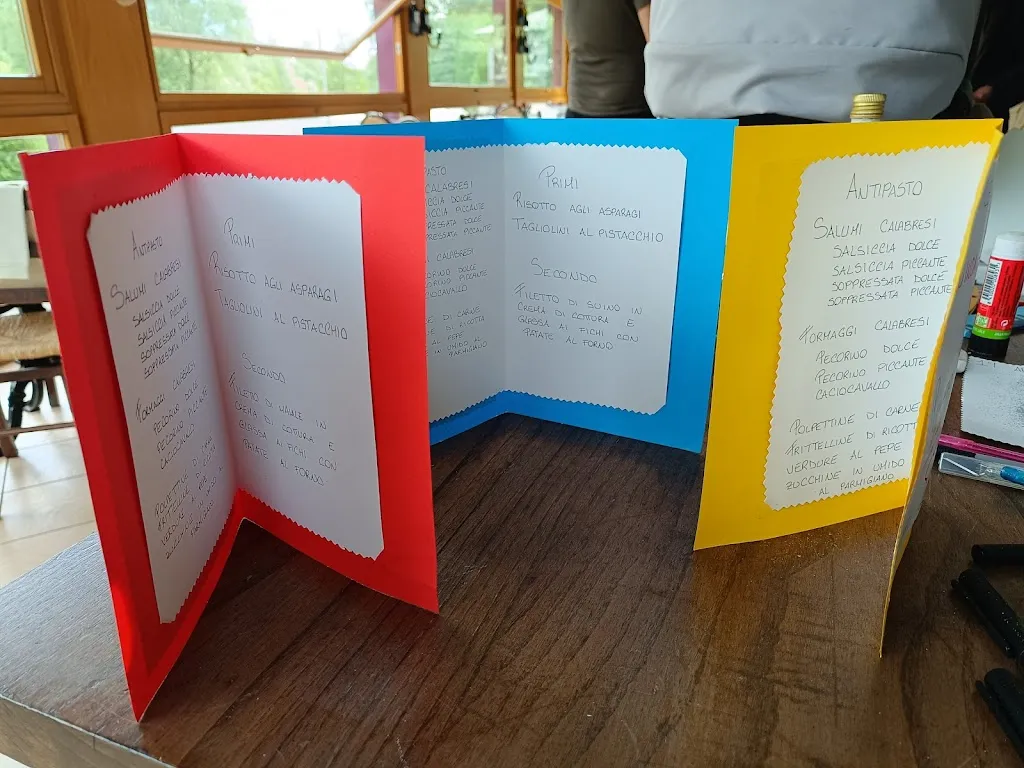 ANTIPASTO
SALUMI CALABRESI
SALSICCIA DOLCE
SALSICCIA PICCANTE
SOPPRESSATA DOLCE
SOPPRESSATA PICCANTE
FORMAGGI CALABRESI
PECORINO DOLCE
PECORINO PICCANTE
CACIOCAVALLO
POLPETTINE DI CARNE
VERDURE AL PEPE
PRIMI
RISOTTO AGLI ASPARAGI
TAGLIOLINI AL PISTACCHIO
SECONDO
FILETTO DI MAIALE IN
CREMA DI COTTURA E
GLASSA AI FICHI CON
PATATE AL FORNO
CALABRESI
DOLCE
PICCANTE
DOLCE
PICCANTE
CALABRESI
DOLCE
PICCANTE
CACIOCAVALLO
DI CARNE
DI RICOTTA
AL PEPE
IN UMIDO
PARMIGIANO
PRIMI
RISOTTO AGLI ASPARAGI
TAGLIOLINI AL PISTACCHIO
SECONDO
FILETTO DI SUINO IN
CREMA DI COTTURA E
GLASSA AI FICHI CON
PATATE AL FORNO
ANTIPASTO
SALUMI CALABRESI
SALSICCIA DOLCE
SALSICCIA PICCANTE
SOPPRESSATA DOLCE
SOPPRESSATA PICCANTE
FORMAGGI CALABRESI
PECORINO DOLCE
PECORINO PICCANTE
CACIOCAVALLO
POLPETTINE DI CARNE
FRITTELLINE DI RICOTT
VERDURE AL PEPE
ZUCCHINE IN UMIDO
AL PARMIGIANO